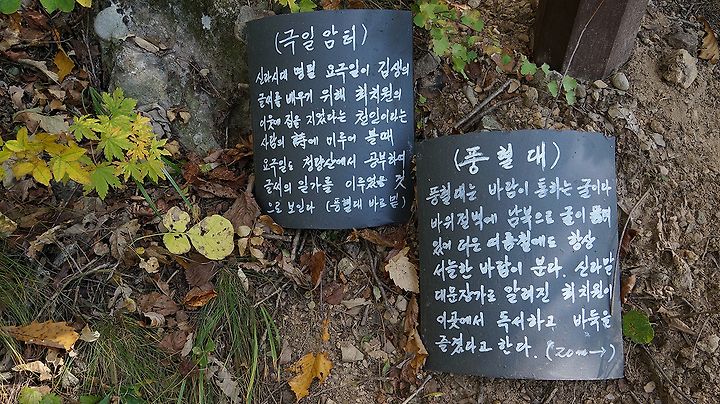 (극일암터)
신라시대 명필 요극일이 김생의
글씨를 배우기 위해 최치원의
이웃에 집을 지었다는 천인이라는
사람의 詩에 미루어 볼때
요극일도 청량산에서 공부하며
글씨의 일가를 이루었을 것
으로 보인다 (풍혈대 바로 밑)
(풍혈대)
풍혈대는 바람이 통하는 굴이다
바위절벽에 남북으로 굴이
있어 더운 여름철에도 항상
서늘한 바람이 분다. 신라말
대문장가로 알려진 최치원이
이곳에서 독서하고 바둑을
즐겼다고 한다. (20m→)